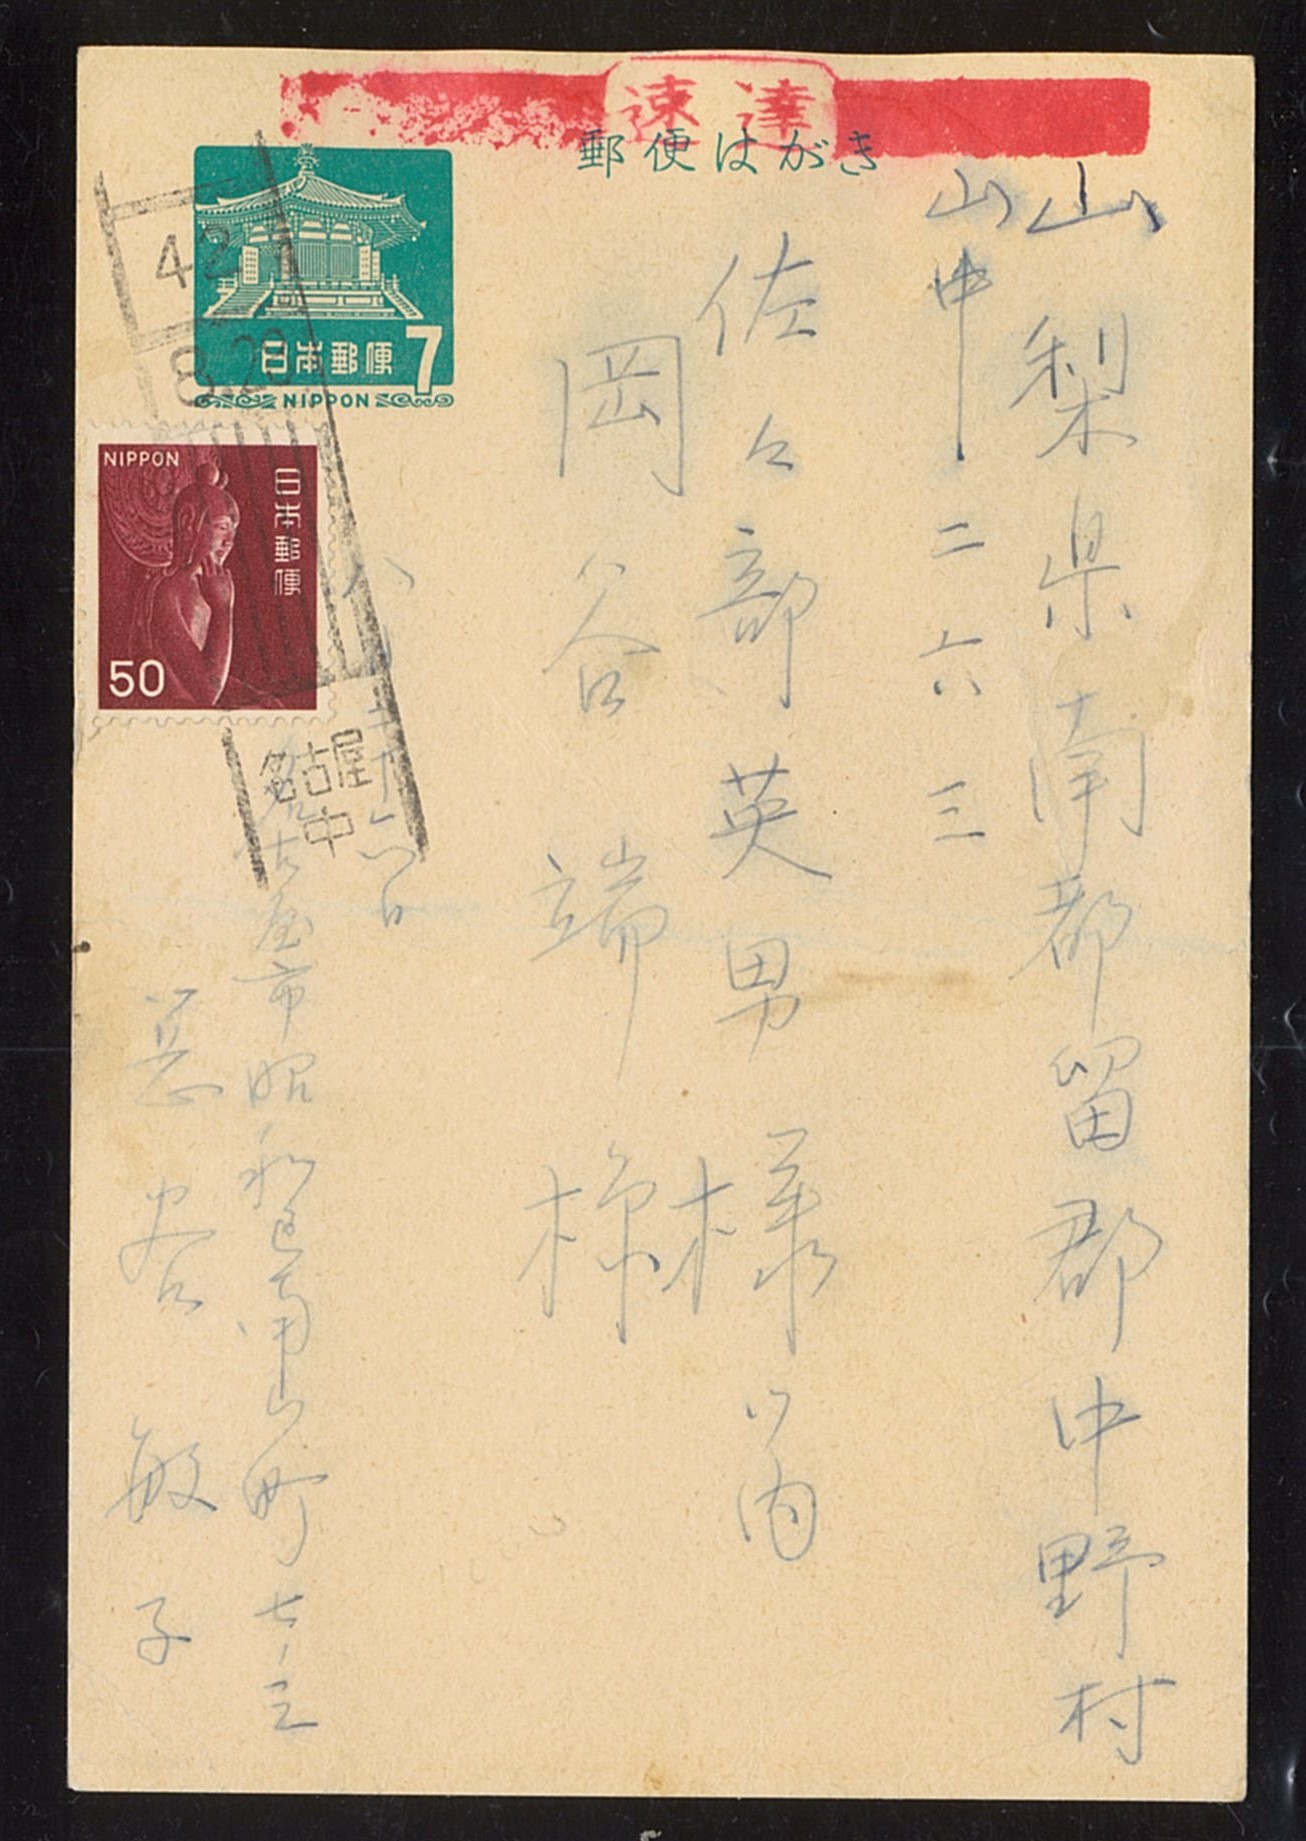 速達
郵便はがき
山梨県南都留郡中野村
山中二六三
佐々部英男様
内
岡谷端様
日本郵便
7
NIPPON
42
8.20
NIPPON
日本郵便
50
名古屋
中
八月二十六日
名古屋市昭和区南山町七ノ三
敏子